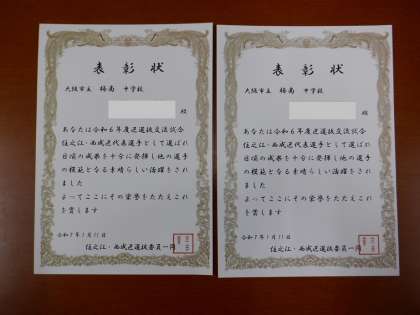 表彰状
大阪市立 梅南 中学校
殿
あなたは令和6年度近選抜交流試合
住之江・西成近代表選手として選ばれ
日頃の成果を十分に発揮し他の選手
の模範となる素晴らしい活躍をされ
ました
よってここにその栄誉をたたえこれ
を賞します
令和7年1月11日
住之江・西成近選抜委員一同
表彰状
大阪市立 梅南 中学校
殿
あなたは令和6年度近選抜交流試合
住之江・西成近代表選手として選ばれ
日頃の成果を十分に発揮し他の選手
の模範となる素晴らしい活躍をされ
ました
よってここにその栄誉をたたえこれ
を賞します
令和7年1月11日
住之江・西成近選抜委員一同